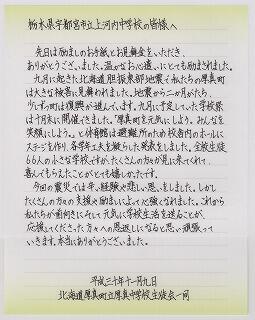 栃木県宇都宮市立上河内中学校の皆様へ
先日は励ましのお手紙とお見舞金をいただき、
ありがとうございました。温かなお心遣いにとても励まされました。
九月に起きた北海道胆振東部地震で私たちの厚真町
は大きな被害に見舞われました。地震から二か月がたち、
少しずつ町は復興が進んでいます。九月に予定していた学校祭
は十月末に開催できました。「厚真町を元気にしよう。みんなを
笑顔にしよう。」と体育館は避難所のため校舎内のホールに
ステージを作り、各学年工夫を凝らした発表をしました。全校生徒
66人の小さな学校ですが、たくさんの方々が見に来てくれて
喜んでもらえたことがとても嬉しかったです。
今回の震災では辛い経験や悲しい思いをしました。しかし
たくさんの方々の支援や励ましによって心強くなれました。これから
私たちが前向きに、そして元気に学校生活を送ることが、
応援してくださった方々への恩返しになると思い頑張って
いきます。本当にありがとうございました。
平成三十年十一月九日
北海道厚真町立厚真中学校生徒会一同